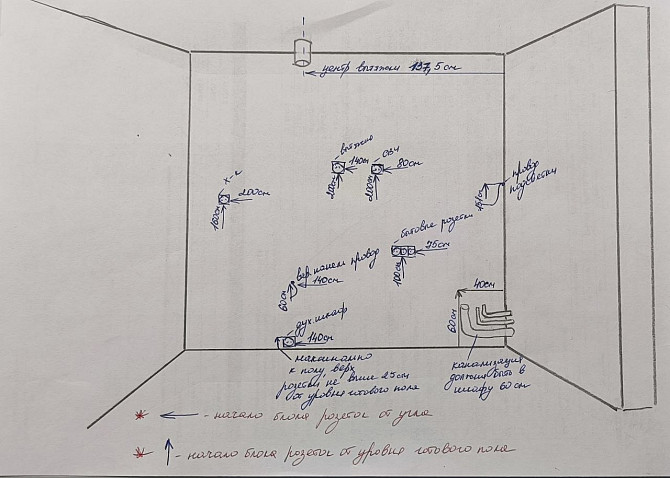 центр вытяжки 197,5 см
вытяжка
140см
200см
СВЧ
80см
200см
х-к
200см
провод
подсветки
бытовые розетки
75см
100см
вар. панель провод
140см
60см
дух. шкаф
140см
максимально
к полу, верх
розетки не выше 25см
от уровня готового пола
40см
60см
канализация
должна быть в
шкафу 60 см
* ← - начало блока розеток от угла
* ↑ - начало блока розеток от уровня готового пола